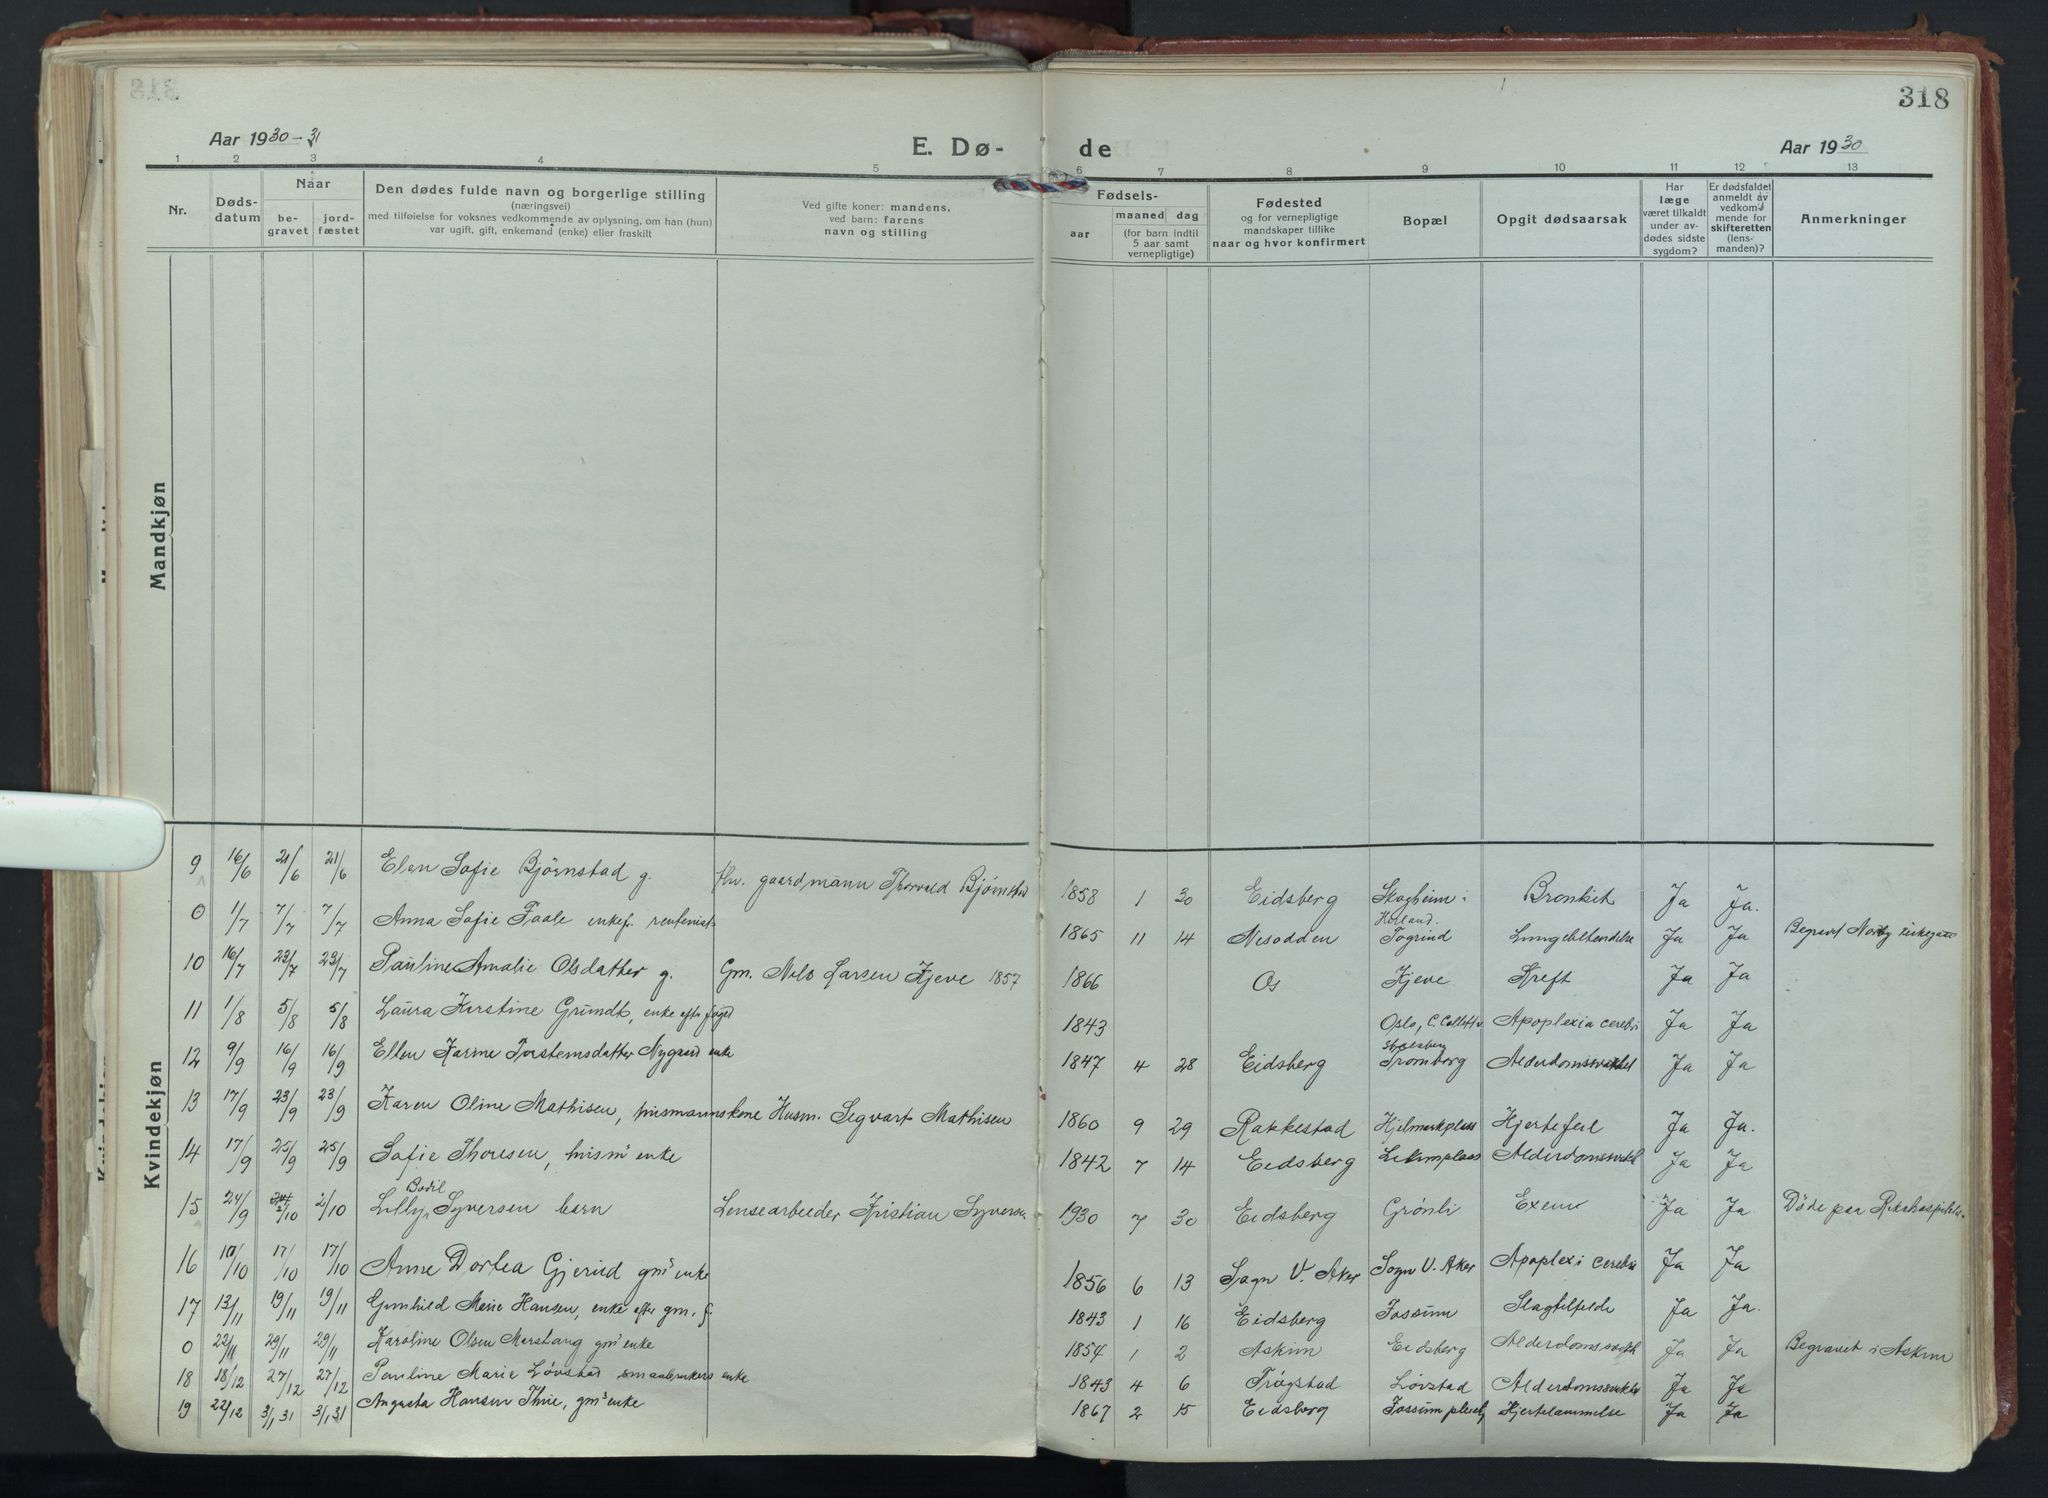 318
Aar 1930-31
E. Dø-
de
Aar 1930
1 2 3 4 5 6 7 8 9 10 11 12 13
Nr.
Døds-
datum
Naar
be-
gravet
jord-
fæstet
Den dødes fulde navn og borgerlige stilling
(næringsvei)
med tilføielse for voksnes vedkommende av oplysning, om han (hun)
var ugift, gift, enkemand (enke) eller fraskilt
Ved gifte koner: mandens,
ved barn: farens
navn og stilling
Fødsels-
aar
maaned dag
(for barn indtil
5 aar samt
vernepligtige)
Fødested
og for vernepligtige
mandskaper tillike
naar og hvor konfirmert
Bopæl
Opgit dødsaarsak
Har
læge
været tilkaldt
under av-
dødes sidste
sygdom?
Er dødsfaldet
anmeldt av
vedkom-
mende for
skifteretten
(lens-
manden)?
Anmerkninger
Mandkjøn
Kvindekjøn
9 16/6 21/6 21/6 Elen Sofie Bjørnstad g. fhv. gaardmann Thorvald Bjørnstad 1858 1 30 Eidsberg Skogheim i Bronkit Ja Ja.
Holland.
0 1/7 7/7 7/7 Anna Sofie Faale enkef. rentenist 1865 11 14 Nesodden Togrind Lungebetendelse Ja Ja Begravet Nordby kirkegaard
10 16/7 23/7 23/7 Pauline Amalie Olsdatter g. Gm. Nils Larsen Kjeve 1857 1866 Os Kjeve Kreft Ja Ja
11 1/8 5/8 5/8 Laura Kirstine Grundt, enke efter foged 1843 Oslo, C. Colletts v. Apoplexia cerebri Ja Ja
12 9/9 16/9 16/9 Ellen Karine Torstensdatter Nygaard enke 1847 4 28 Eidsberg Tromborg Alderdomssvakhet Ja Ja
13 17/9 23/9 23/9 Karen Oline Mathisen, husmannskone Husm. Segvart Mathisen 1860 9 29 Rakkestad Hjelmarkplass Hjertefeil Ja Ja.
14 17/9 25/9 25/9 Sofie Thoresen, husms enke 1842 7 14 Eidsberg Lekumplass Alderdomssvakh Ja Ja
Bodil
15 24/9 2/10 2/10 Lilly Syversen barn Lensearbeider Kristian Syversen 1930 7 30 Eidsberg Grønli Exem Ja Ja Døde paa Rikshospitalet
16 10/10 17/10 17/10 Anne Dortea Gjerud gms enke 1856 6 13 Sogn V. Aker Sogn V. Aker Apoplexi cerebri Ja Ja
17 13/11 19/11 19/11 Gunhild Marie Hansen, enke efter gm. f 1843 1 16 Eidsberg Fossum Slagtilfelde Ja Ja.
0 22/11 29/11 29/11 Karoline Olsen Morstang gms enke 1854 1 2 Askim Eidsberg Alderdomssvakh Ja Ja Begravet i Askim
18 18/12 27/12 27/12 Pauline Marie Løvstad smaabrukers enke 1843 4 6 Trøgstad Løvstad Alderdomssvakhet Ja Ja
19 22/12 3/1 31 3/1 31 Augusta Hansen Thue, gms enke 1867 2 15 Eidsberg Fossum pleiehj Hjertelammelse Ja Ja